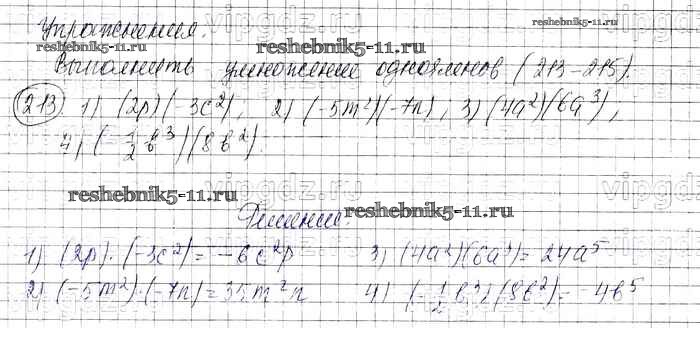 Упражнения.
reshebnik5-11.ru
reshebnik5-11.ru
reshebnik5-11.ru
Выполнить умножение одночленов (213-215).
213) 1) (2p)(-3c²), 2) (-5m²)(-7n), 3) (4a²)(6a³),
4) (-1/2 b³)(8b²).
vipgdz.ru
reshebnik5-11.ru
reshebnik5-11.ru
Решение.
1) (2p)·(-3c²) = -6c²p 3) (4a²)(6a³) = 24a⁵
2) (-5m²)·(-7n) = 35m²n 4) (-1/2 b³)(8b²) = -4b⁵